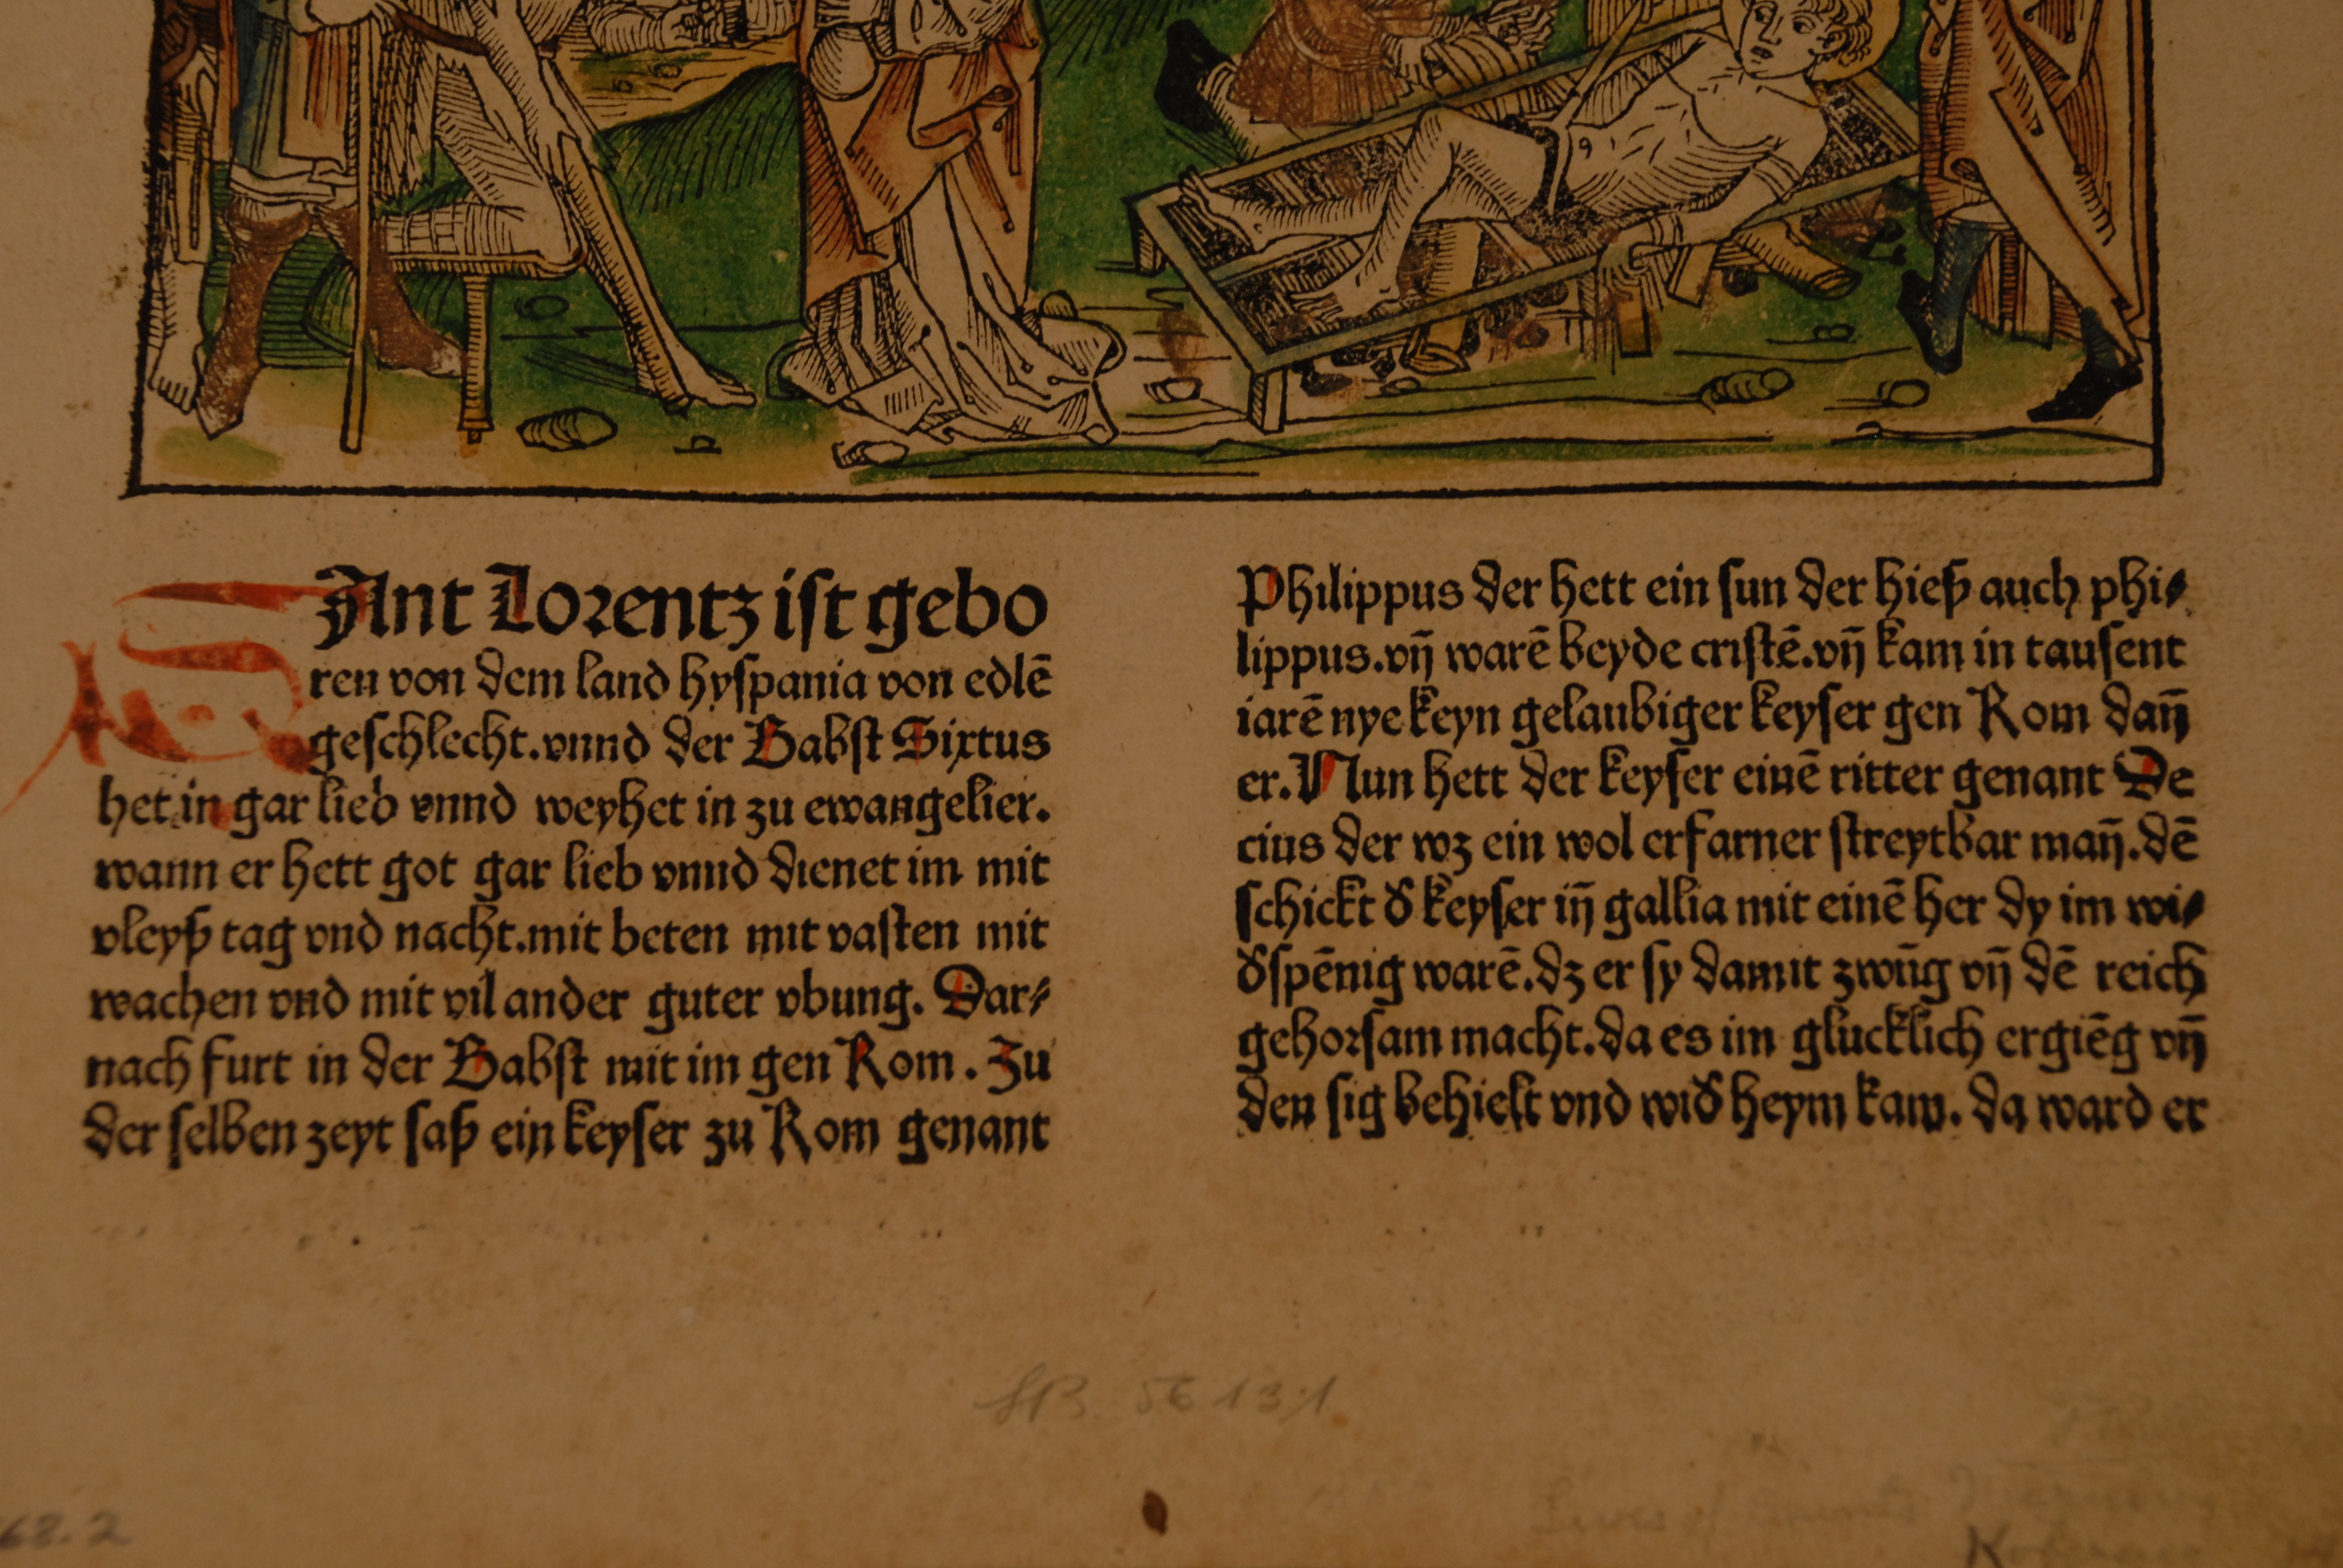 SAnt Lorentz ist gebo
ren von dem land hyspania von edlē
geschlecht. vnnd der Babst Sixtus
het in gar lieb vnnd weyhet in zu ewangelier.
wann er hett got gar lieb vnnd dienet im mit
vleyß tag vnd nacht. mit beten mit vasten mit
wachen vnd mit vil ander guter vbung. Dar⸗
nach furt in der Babst mit im gen Rom. Zu
der selben zeyt saß ein keyser zu Rom genant
Philippus der hett ein sun der hieß auch phi⸗
lippus. vn̄ warē beyde cristē. vn̄ kam in tausent
iarē nye keyn gelaubiger keyser gen Rom dan̄
er. Nun hett der keyser einē ritter genant De
cius der wz ein wol erfarner streytbar man̄. dē
schickt ď keyser in̄ gallia mit einē her dy im wi⸗
ďspēnig warē. dz er sy damit zwūg vn̄ dē reich
gehorsam macht. da es im glucklich ergiēg vn̄
den sig behielt vnd wiď heym kam. da ward er
56131
68.2
Lives of